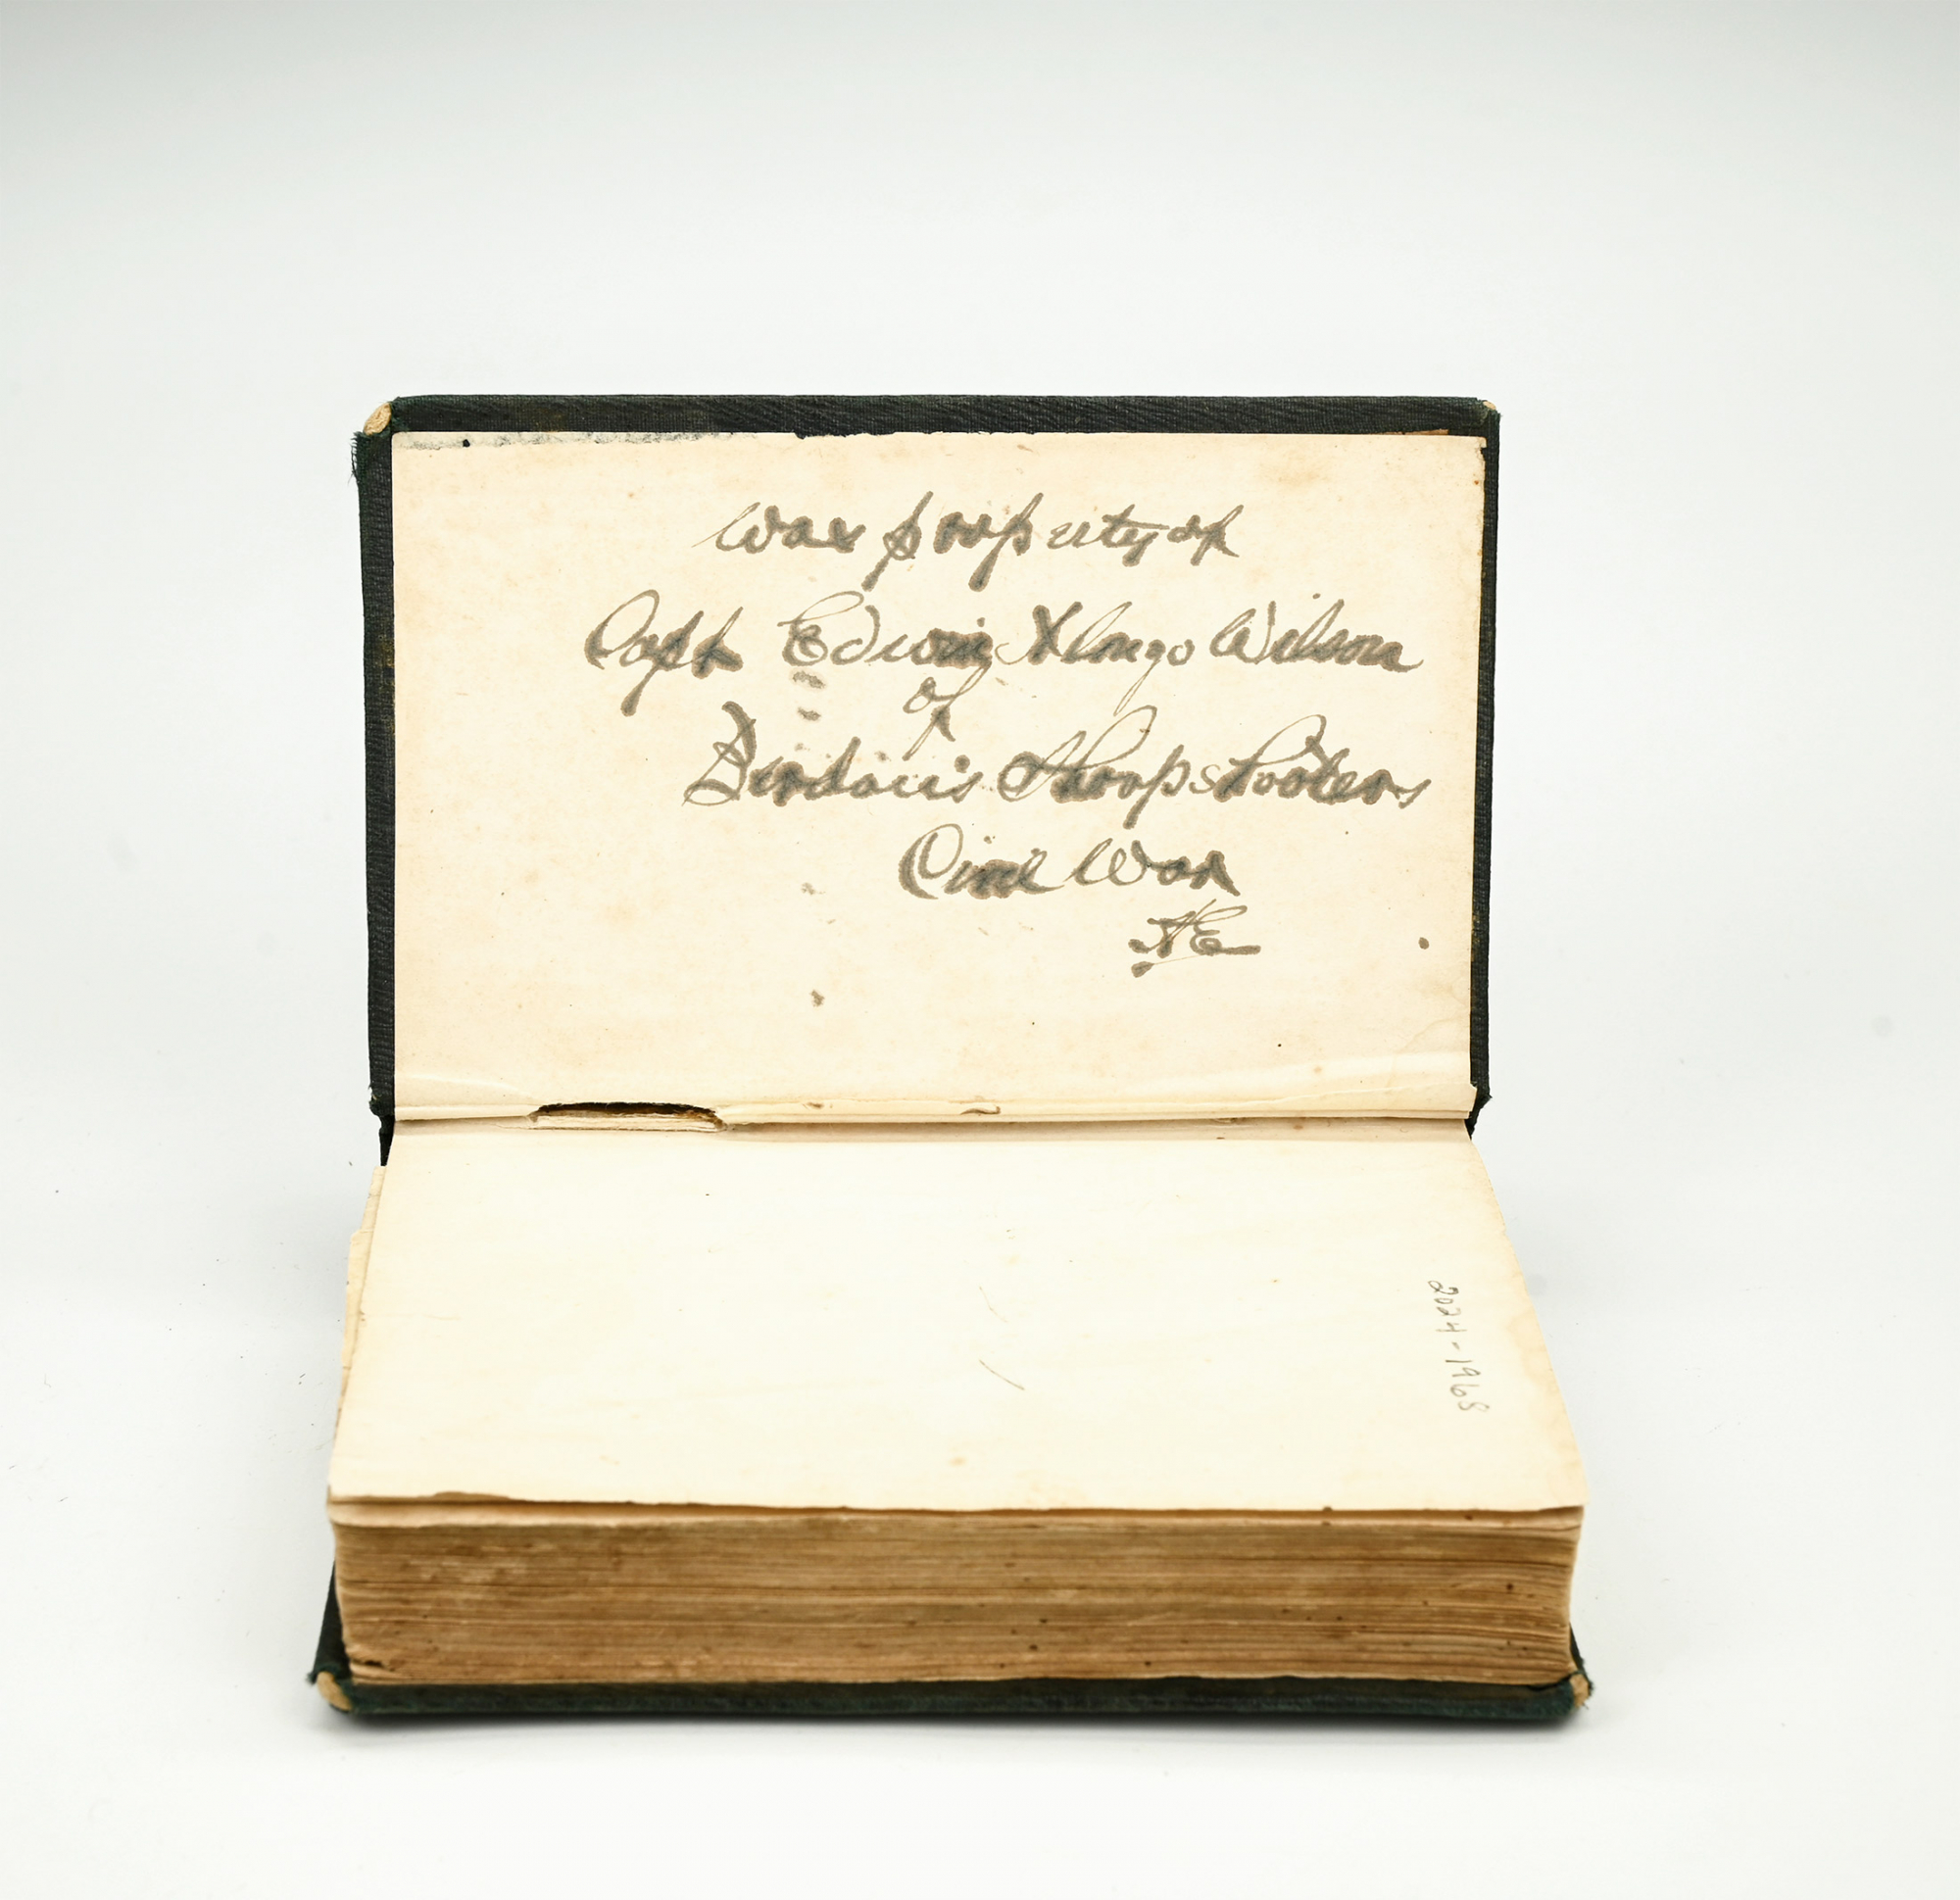 Was property of
Capt Edwin Alonzo Wilson
of
Berdan's Sharpshooters
Civil War
AE
2024-1968